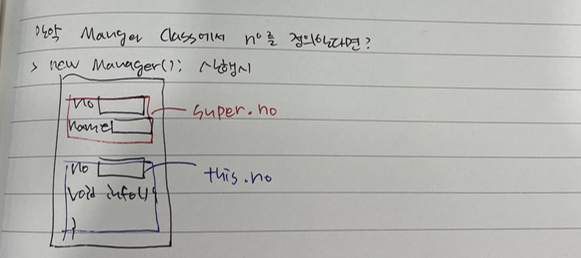 만약 Manger Class에서 no를 정의한다면?
> new Manager(); 실행시
no
super.no
name
no
this.no
void info() {
}